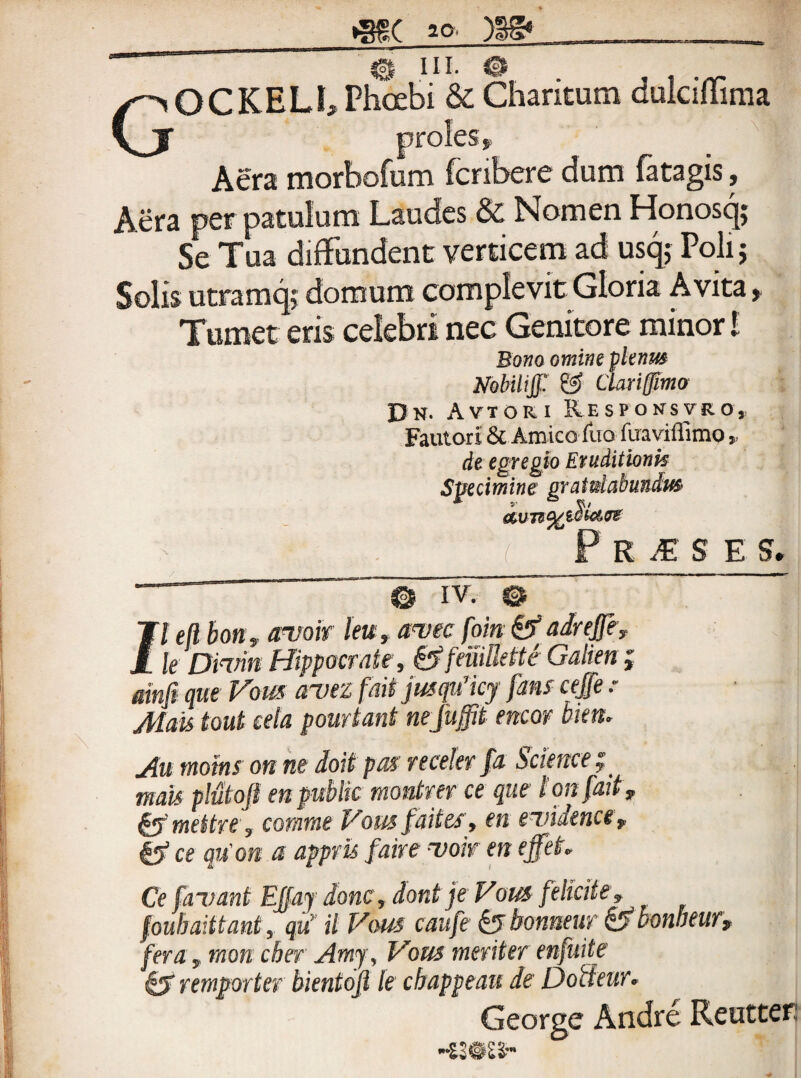 20.
III.
GOCKELI, Phœbi & Charitum dulciſſima
proles,
Aëra morboſum ſcribere dum ſatagis,
Aëra per patulum Laudes & Nomen Honosq;
Se Tua diffundent verticem ad usq; Poli;
Solis utramq; domum complevit Gloria Avita,
Tumet eris celebri nec Genitore minor!
Bono omine plenus
Nobiliſſ. & Clariſſimo
DN. AVTORI RESPONSVRO,
Fautori & Amico ſuo ſuaviſſimo,
de egregio Eruditionis
Specimine gratulabundus
PRÆSES.
IV.
Il eſt bon, avoir leu, avec ſoin & adreſſe,
le Divin Hippocrate, & feüilletté Galien;
ainſi que Vous avez fait jusqu'icy ſans ceſſe:
Mais tout cela pourtant ne ſuffit encor bien.
Au moins on ne doit pas receler ſa Science;
mais plûtoſt en public montrer ce que l'on fait,
& mettre, comme Vous faites, en evidence,
& ce qu'on a appris faire voir en effet.
Ce ſavant Eſſay donc, dont je Vous felicite,
ſouhaittant, qu' il Vous cauſe & honneur & bonheur,
fera, mon cher Amy, Vous meriter enſuite
& remporter bientôſt le chappeau de Docteur.
George André Reutter.